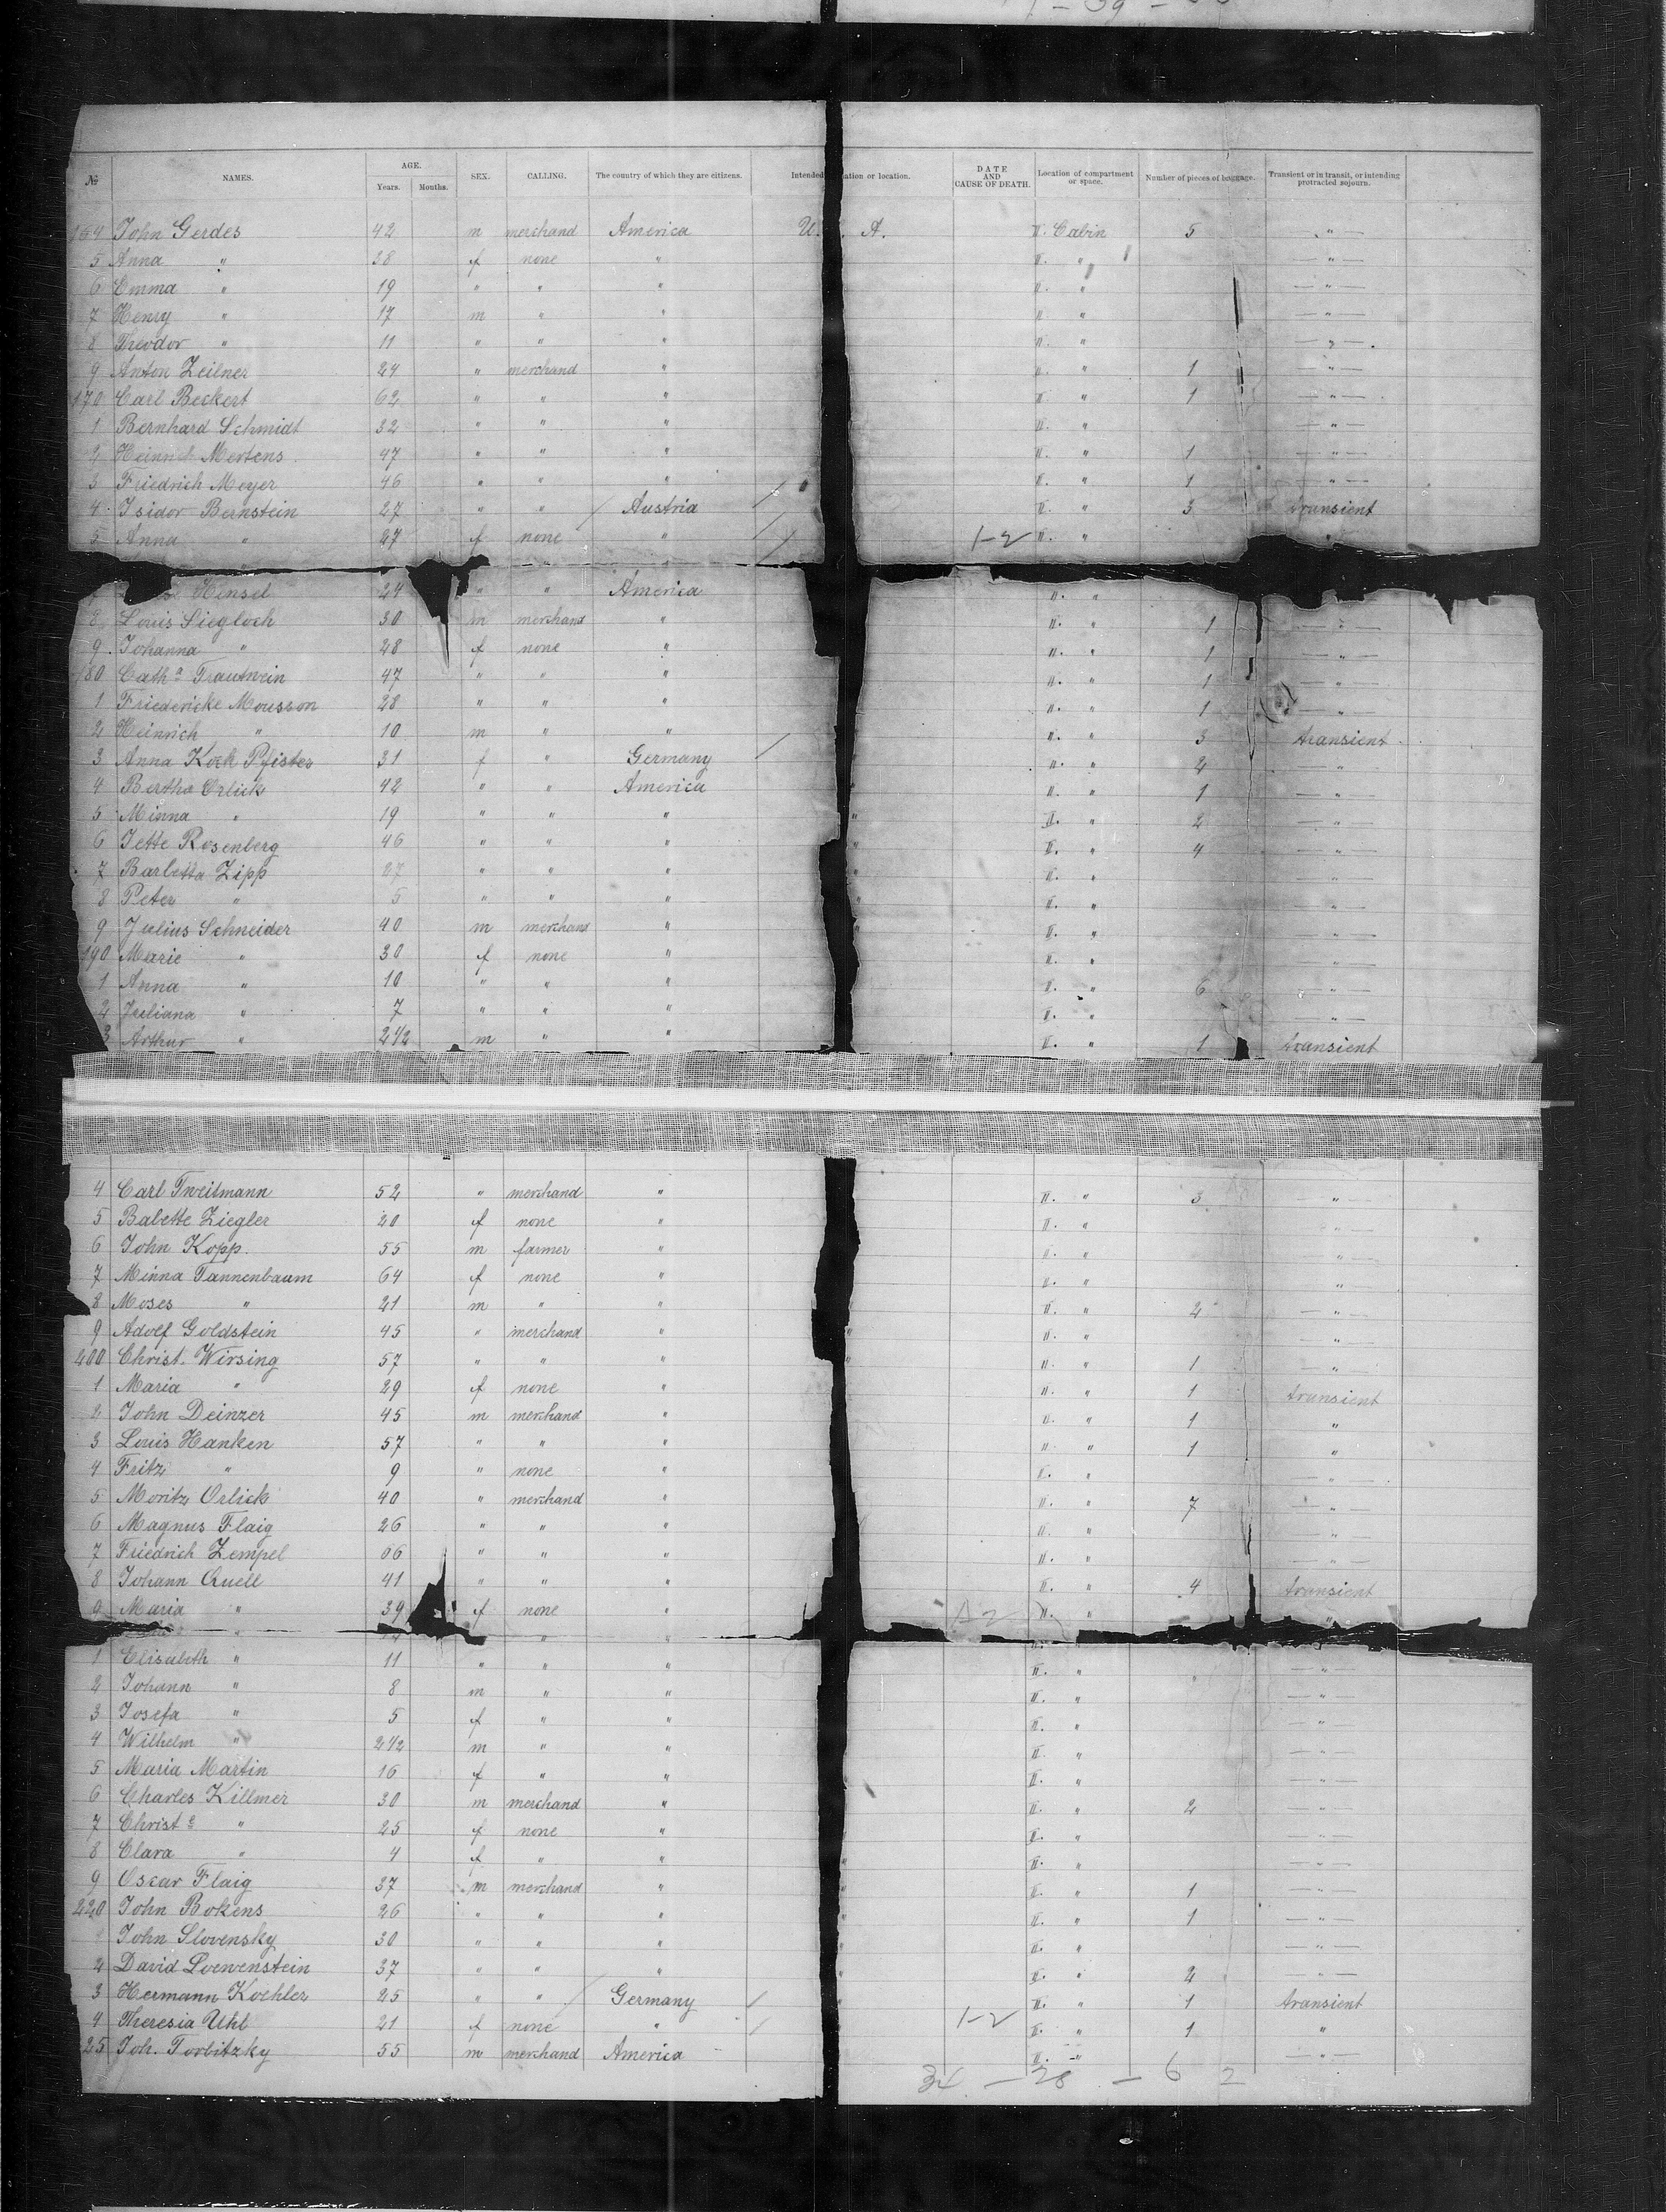 № NAMES. AGE. Years. Months. SEX. CALLING. The country of which they are citizens. Intended ation or location. DATE AND CAUSE OF DEATH. Location of compartment or space. Number of pieces of baggage. Transient or in transit, or intending protracted sojourn.
164 John Gerdes 42 m merchand America U. A. II. Cabin 5 — " —
5 Anna " 38 f none " II. " — " —
6 Emma " 19 " " " II. " — " —
7 Henry " 17 m " " II. " — " —
8 Theodor " 11 " " " II. " — " —
9 Anton Zeilner 24 " merchand " II. " 1 — " —
170 Carl Beckert 62 " " " II. " 1 — " —
1 Bernhard Schmidt 32 " " " II. " — " —
2 Heinr. Mertens 47 " " " II. " 1 — " —
3 Friedrich Meyer 46 " " " II. " 1 — " —
4 Isidor Bernstein 27 " " Austria II. " 3 transient
5 Anna " 27 f none " 1-2 II. " "
Hensel 24 " " America II. "
8 Louis Siegloch 30 m merchand " II. " 1 — " —
9 Johanna " 28 f none " II. " 1 — " —
180 Cath.a Trautwein 47 " " " II. " 1 — " —
1 Friedericke Mousson 28 " " " II. " 1 — " —
2 Heinrich " 10 m " " II. " 3 transient
3 Anna Kock Pfister 31 f " Germany II. " 2 — " —
4 Bertha Orlick 42 " " America " II. " 1 — " —
5 Minna " 19 " " " " II. " 2 — " —
6 Jette Rosenberg 46 " " " " II. " 4 — " —
7 Barbetta Zipp 27 " " " " II. " — " —
8 Peter " 5 " " " " II. " — " —
9 Julius Schneider 40 m merchand " " II. " — " —
190 Marie " 30 f none " II. " — " —
1 Anna " 10 " " " II. " 6 — " —
2 Juliana " 7 " " " II. " — " —
3 Arthur " 2 1/2 m " " II. " 1 transient
4 Carl Tweitmann 52 " merchand " II. " 3 — " —
5 Babette Ziegler 20 f none " II. " — " —
6 John Kopp. 55 m farmer " II. " — " —
7 Minna Tannenbaum 64 f none " II. " "
8 Moses " 21 m " " II. " 2 — " —
9 Adolf Goldstein 45 " merchand " " II. " — " —
200 Christ. Wirsing 57 " " " " II. " 1 — " —
1 Maria " 29 f none " II. " 1 transient
2 John Deinzer 45 m merchand " II. " 1 "
3 Louis Hanken 57 " " " II. " 1 "
4 Fritz " 9 " none " II. " — " —
5 Moritz Orlick 40 " merchand " II. " 7 — " —
6 Magnus Flaig 26 " " " II. " "
7 Friedrich Zempel 66 " " " II. " — " —
8 Johann Quell 41 " " " II. " 4 transient
9 Maria " 39 f none " 1-2 II. " "
" " "
1 Elisabeth " 11 " " " II. " — " —
2 Johann " 8 m " " II. " — " —
3 Josefa " 5 f " " II. " — " —
4 Wilhelm " 2 1/2 m " " II. " — " —
5 Maria Martin 16 f " " II. " — " —
6 Charles Killmer 30 m merchand " II. " 2 — " —
7 Christ.e " 25 f none " II. " — " —
8 Clara " 4 f " " " II. " — " —
9 Oscar Flaig 37 m merchand " " II. " 1 — " —
220 John Bokens 26 " " " " II. " 1 — " —
John Slovensky 30 " " " " II. " — " —
2 David Loewenstein 37 " " " " II. " 2 — " —
3 Hermann Koehler 25 " " Germany II. " 1 transient
4 Theresia Uhl 21 f none " 1-2 II. " 1 "
25 Joh. Torbitzky 55 m merchand America II. " — " —
34 — 28 — 6 2